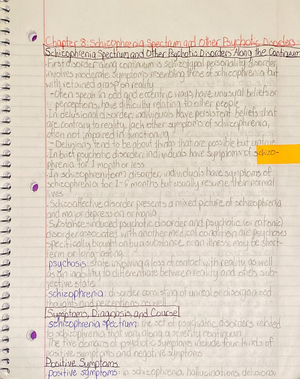 Chapter 8: Schizophrenia Spectrum and Other Psychotic Disorders
Schizophrenia Spectrum and Other Psychotic Disorders Along the Continuum
-First disorder along continuum is schizotypal personality disorder,
involves moderate symptoms resembling those of schizophrenia but
with retained grasp on reality
-Often speak in odd and eccentric ways, have unusual beliefs or
perceptions, have difficulty relating to other people
-In delusional disorder, individuals have persistent beliefs that
are contrary to reality, lack other symptoms of schizophrenia,
often not impaired in functioning
-Delusions tend to be about things that are possible but untrue
-In brief psychotic disorder, individuals have symptoms of schizo-
phrenia for 1 month or less
-In schizophreniform disorder, individuals have symptoms of
schizophrenia for 1-6 months but usually resume their normal
lives
-Schizoaffective disorder presents a mixed picture of schizophrenia
and major depression or mania
-Substance-induced psychotic disorder and psychotic (or catatonic)
disorder associated with another medical condition are psychoses
specifically brought on by a substance or an illness, may be short-
term or long lasting
psychosis: state involving a loss of contact with reality as well
as an inability to differentiate between reality and one's sub-
jective state
schizophrenia: disorder consisting of unreal or disorganized
thoughts and perceptions as well
Symptoms, Diagnosis, and Course
schizophrenia spectrum: the set of psychotic disorders related
to schizophrenia that vary along a severity continuum
-The five domains of psychotic symptoms include four kinds of
positive symptoms and negative symptoms
Positive Symptoms
positive symptoms: in schizophrenia, hallucinations, delusions,